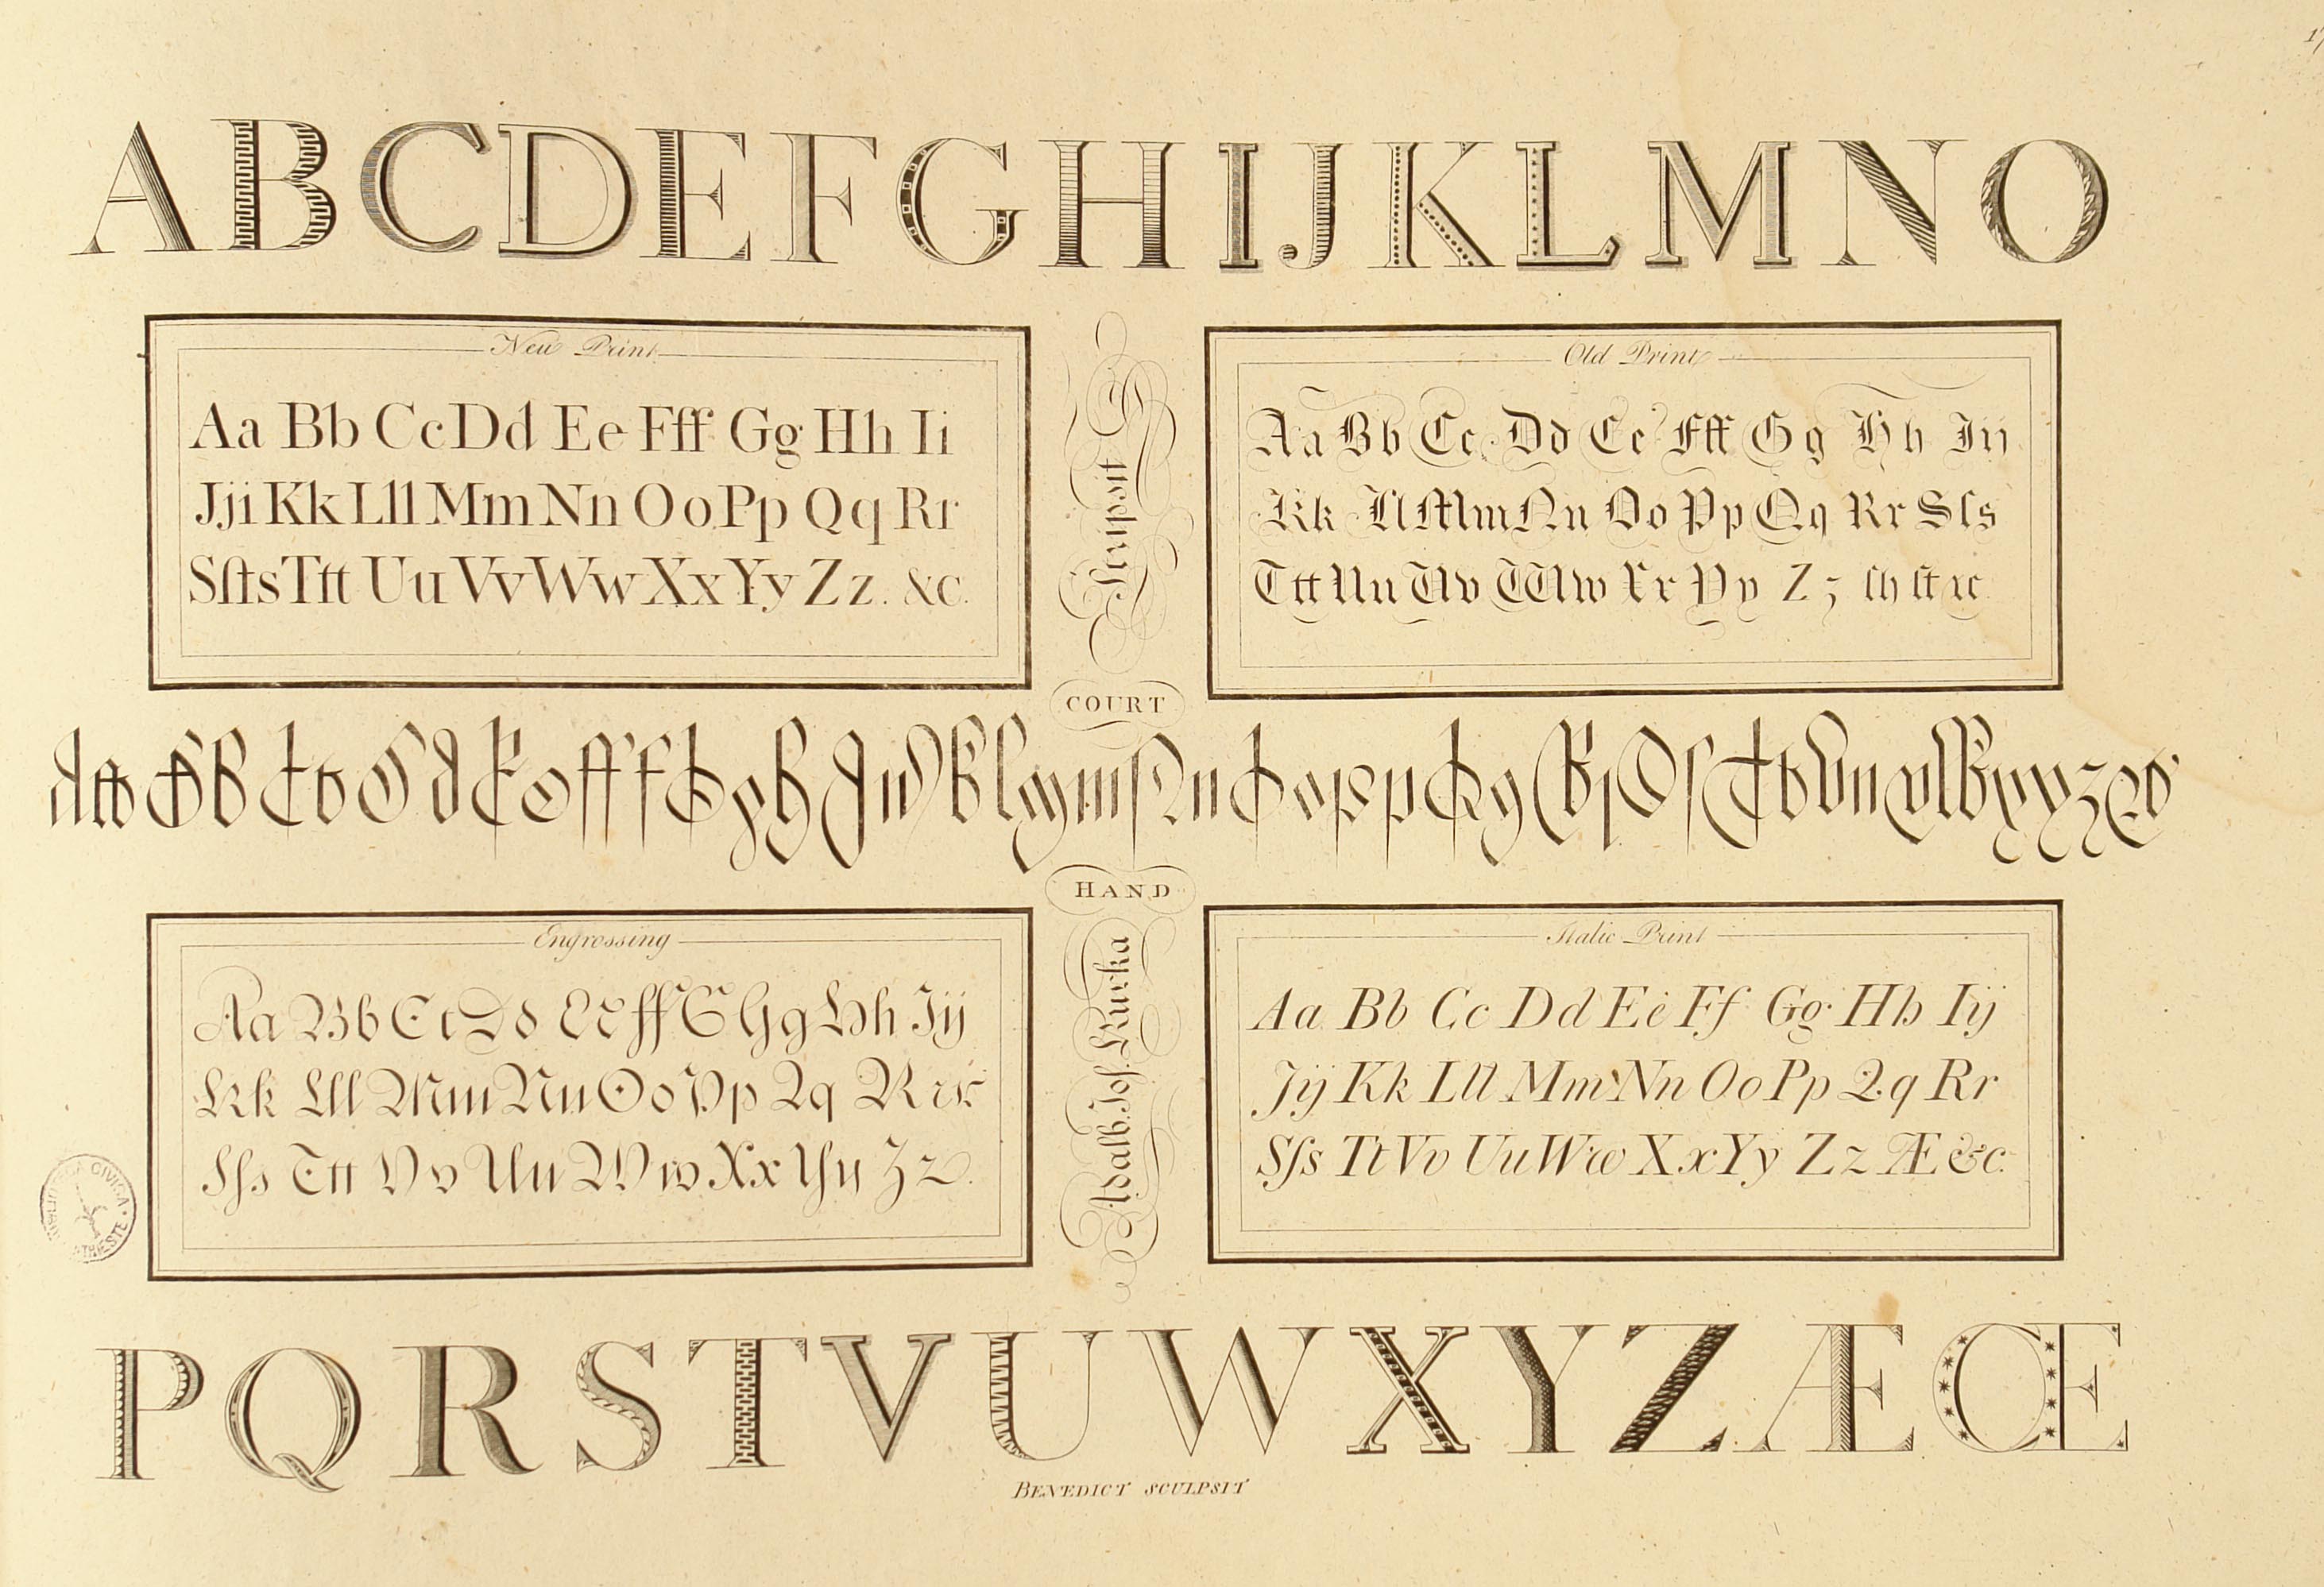 17
A B C D E F G H I J K L M N O
New Print
Aa Bb Cc Dd Ee Fff Gg Hh Ii
Jji Kk Lll Mm Nn Oo Pp Qq Rr
Sſts Ttt Uu Vv Ww Xx Yy Zz. &c.
Scripsit
Old Print
Aa Bb Cc Dd Ee Fff Gg Hh Iij
Kk Ll Mm Nn Oo Pp Qq Rr Sſs
Ttt Uu Vv Ww Xx Yy Zz ch ſt ꝛc
COURT
HAND
Engrossing
Aa Bb Cc Dd Ee ff G Gg Hh Jij
Kk Lll Mm Nn Oo Pp Qq R rr
Sſs Ttt Vv Uu Ww Xx Yy Zz.
Adalb. Joſ.
Italic Print
Aa Bb Cc Dd Ee Ff Gg Hh Iij
Jij Kk Lll Mm Nn Oo Pp Qq Rr
Sſs Tt Vv Uu Ww Xx Yy Zz Æ &c.
CIVICA TRIESTE
P Q R S T V U W X Y Z Æ Œ
BENEDICT SCULPSIT